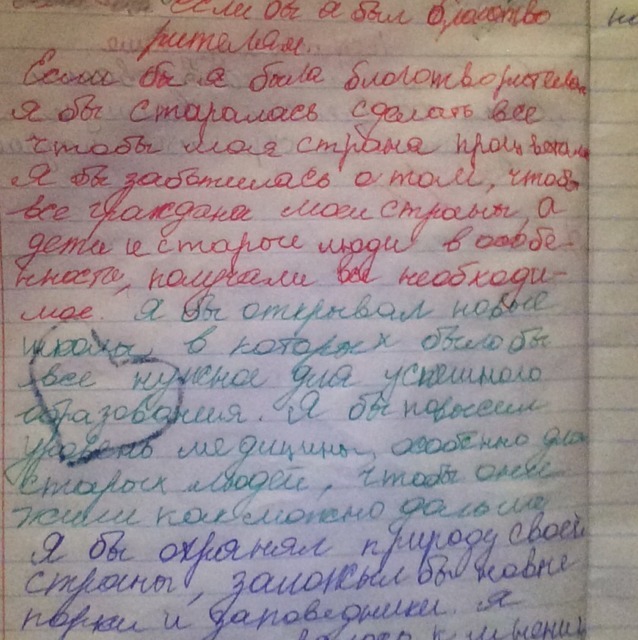 если бы я был благотво
рителем.
Если бы я была благотворителем
я бы старалась сделать все
чтобы моя страна процветала
Я бы заботилась о том, чтобы
все граждана моей страны, а
дети и старые люди в особе-
нности, получали все необходи-
мое. Я бы открывал новые
школы в которых было бы
все нужное для успешного
образования. Я бы повысил
уровень медицины, особенно для
старых людей, чтобы они
жили как можно дольше
Я бы охранял природу своей
страны, заложил бы новые
парки и заповедники. Я